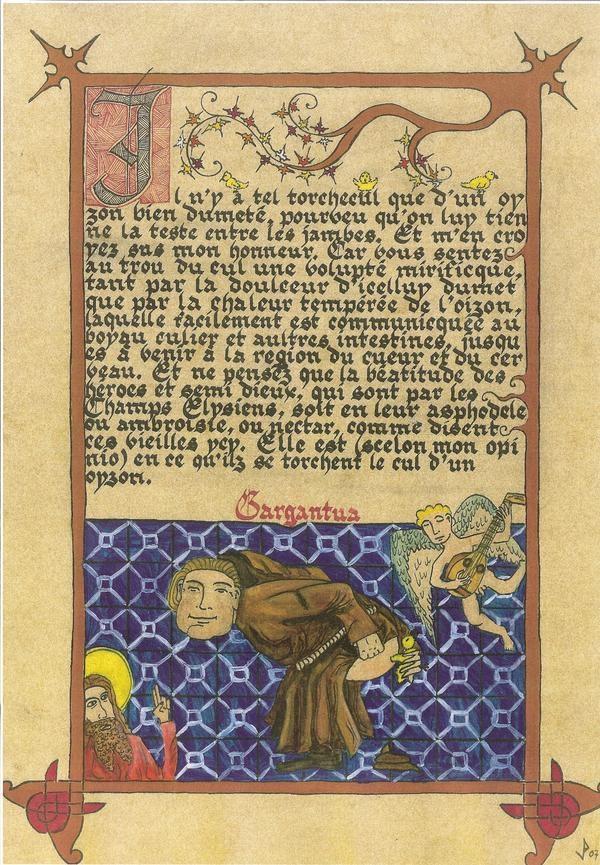 Il n'y à tel torchecul que d'un oy
zon bien dumeté, pourveu qu'on luy tien
ne la teste entre les jambes. Et m'en cro
yez sus mon honneur. Car vous sentez
au trou du cul une volupté mirificque,
tant par la doulceur d'icelluy dumet
que par la chaleur tempérée de l'oizon,
laquelle facilement est communicquée au
boyau culier et aultres intestines, jusqu
es à venir à la region du cueur et du cer
veau. Et ne pensez que la béatitude des
heroes et semi dieux, qui sont par les
Champs Elysiens, soit en leur asphodele
ou ambroisie, ou nectar, comme disent
ces vieilles ycy. Elle est (scelon mon opi
nio) en ce qu'ilz se torchent le cul d'un
oyzon.
Gargantua
07